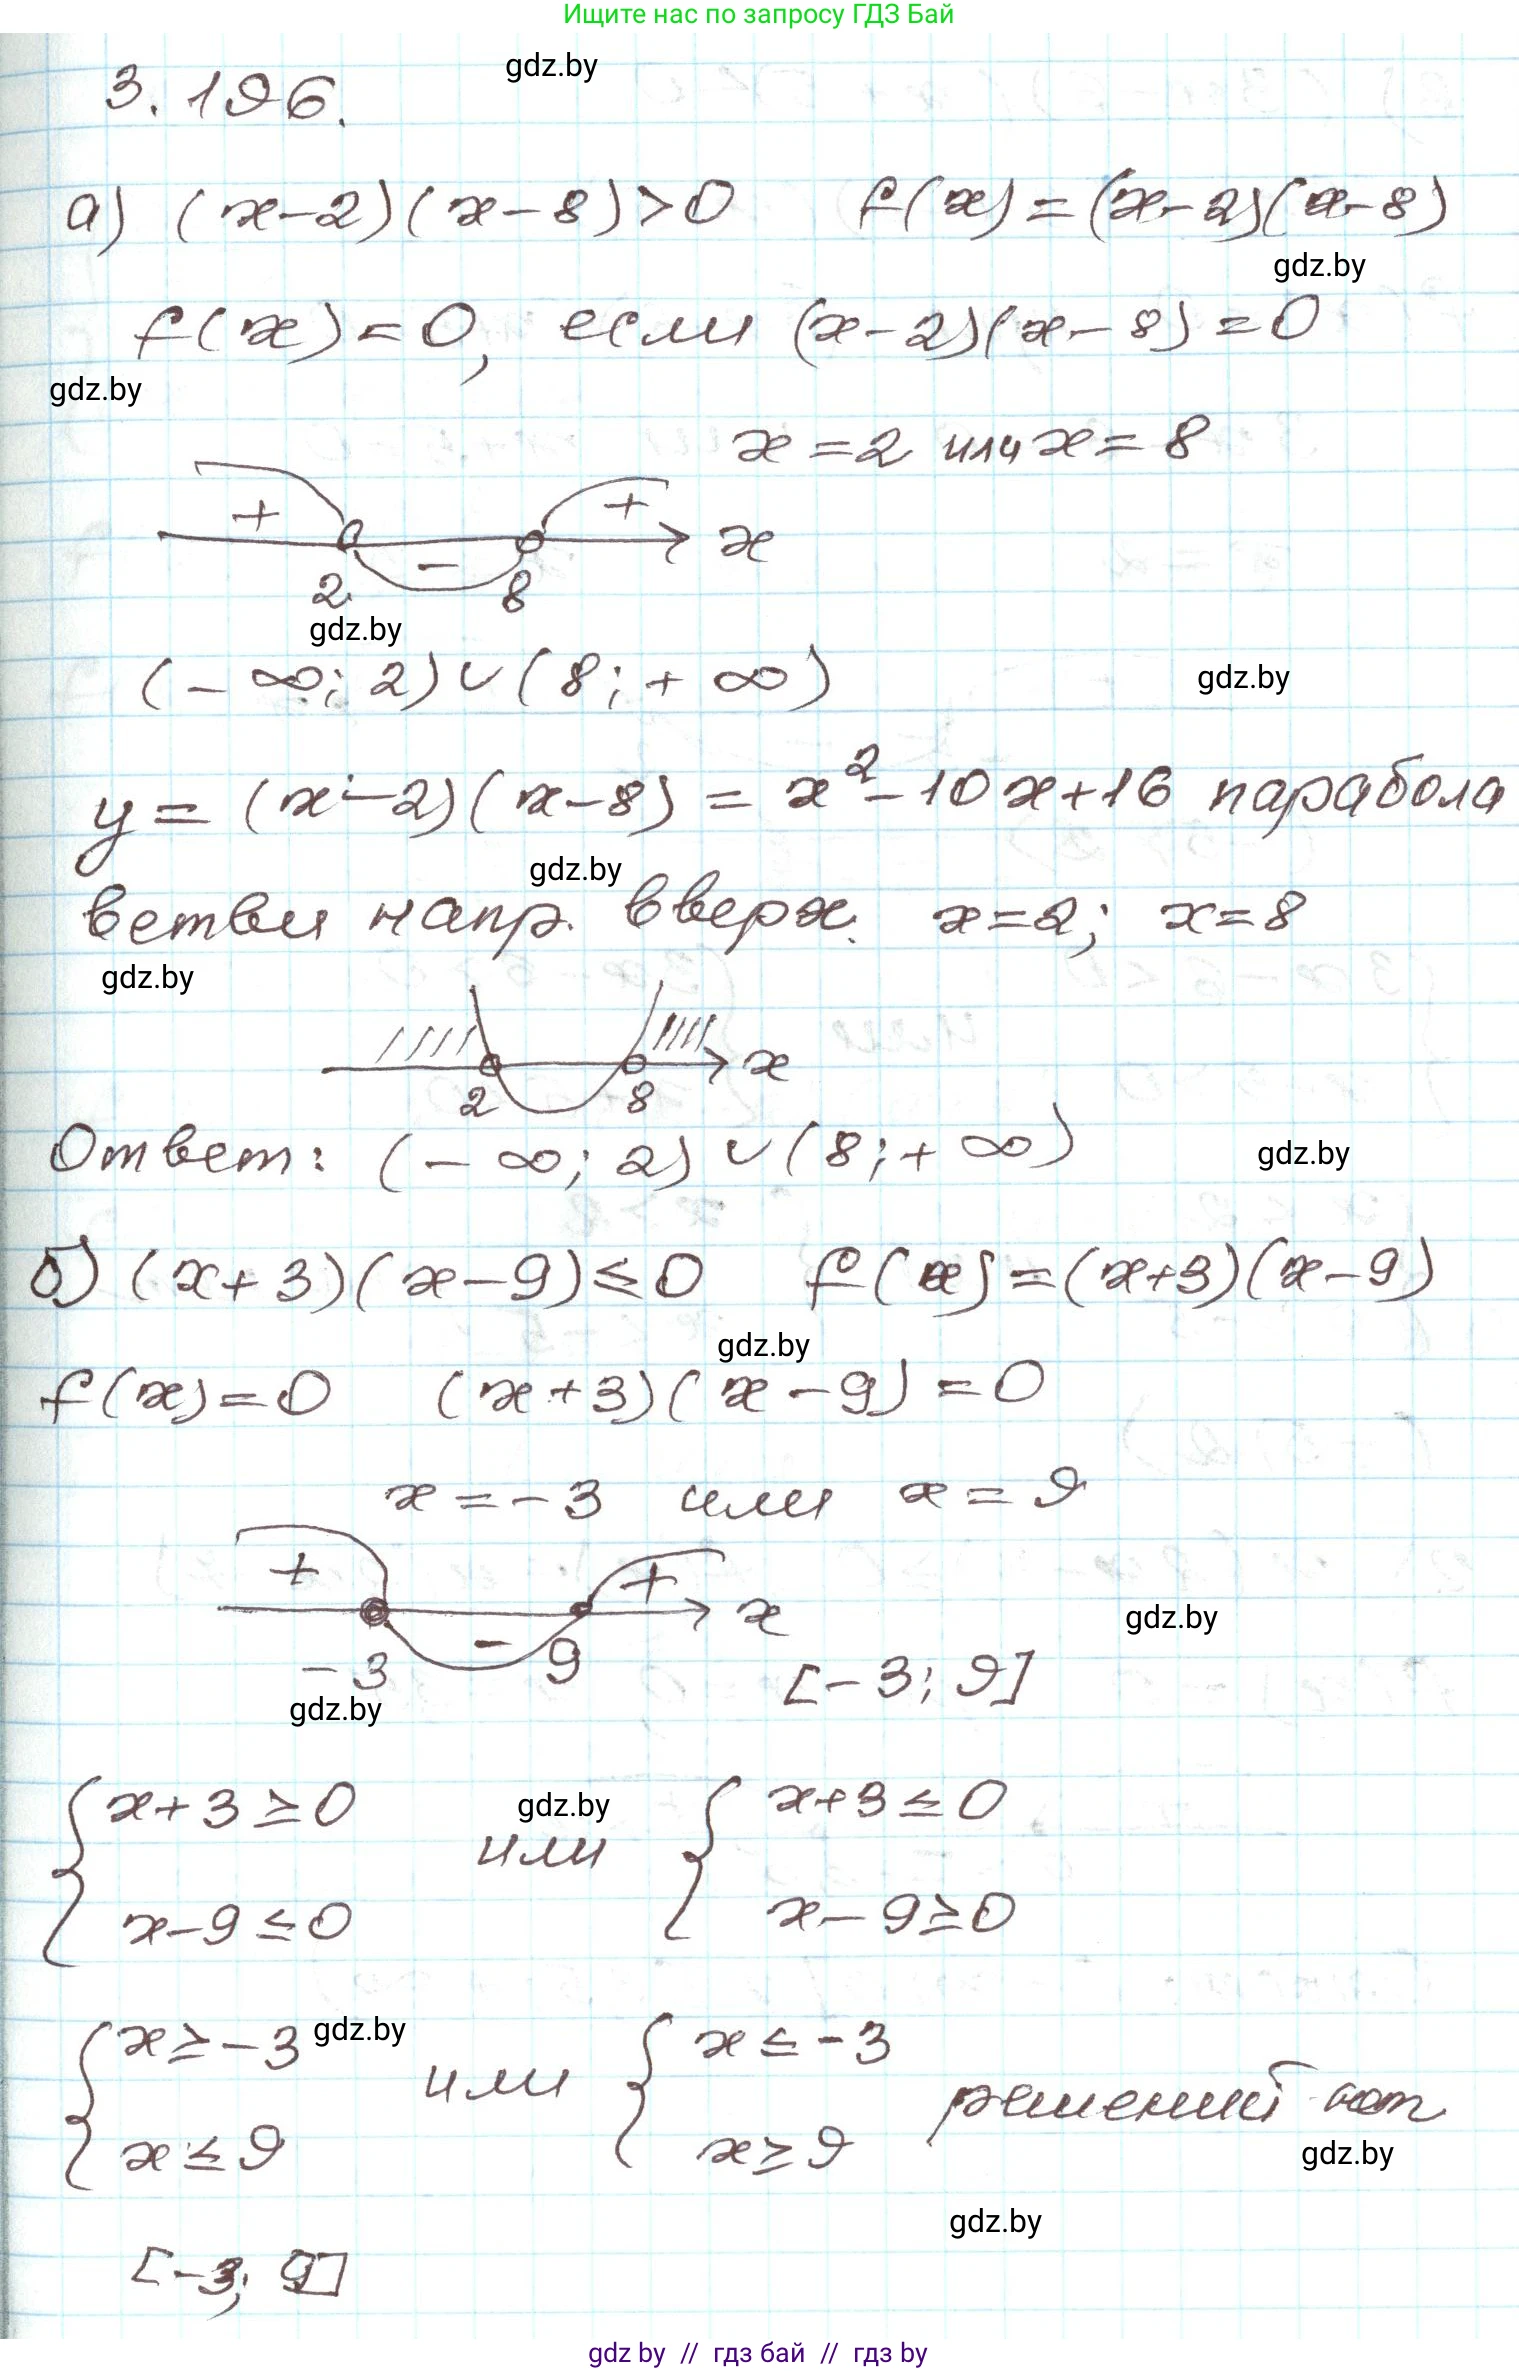 Ищите нас по запросу ГДЗ Бай
3.196.
gdz.by
а) (x-2)(x-8)>0 f(x)=(x-2)(x-8)
gdz.by
f(x)=0, если (x-2)(x-8)=0
gdz.by
x=2 или x=8
+ - + x
2 8
gdz.by
(-∞; 2)∪(8;+∞)
gdz.by
y=(x-2)(x-8)=x²-10x+16 парабола
gdz.by
ветви напр. вверх. x=2; x=8
gdz.by
x
2 8
Ответ: (-∞; 2)∪(8;+∞)
gdz.by
б) (x+3)(x-9)≤0 f(x)=(x+3)(x-9)
gdz.by
f(x)=0 (x+3)(x-9)=0
x=-3 или x=9
+ - + x
gdz.by
-3 9 [-3; 9]
gdz.by
{x+3≥0 или {x+3≤0
gdz.by
x-9≤0 x-9≥0
{x≥-3 или {x≤-3 решений нет
gdz.by
x≤9 x≥9
gdz.by
gdz.by
[-3; 9]
gdz by // гдз бай // гдз by